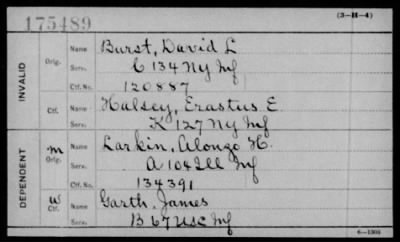 175489
(3-H-4)
INVALID
Orig.
Name Burst, David L
Serv. C 134 Ny Inf
Ctf. No. 120887
Ctf.
Name Halsey, Erastus E.
Serv. K 127 Ny Inf
DEPENDENT
m
Orig.
Name Larkin, Alonzo H.
Serv. A 104 Ill Inf
Ctf. No. 134391
W
Ctf.
Name Garth, James
Serv. B 67 USC Inf
6-1303